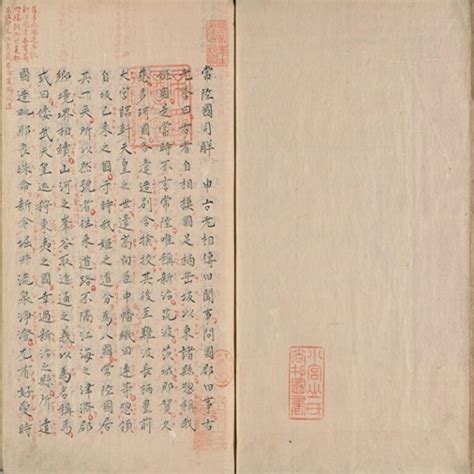 常陸國司解　申古老相傳旧聞事問國郡旧事古
老答曰古者自相摸國足柄岳坂以東諸縣惣稱我
姬國是當時不言常陸唯稱新治筑波茨城那賀久
慈多珂國各遣造別令捡挍其後至難波長柄豊前
大宮臨軒天皇之世遣高向臣中幡織田連等惣領
自坂已東之國于時我姬之道分為八國常陸國居
其一矣所以然號者往來道路不隔江海之津濟郡
鄉境界相續山河之峯谷取近通之義以為名稱焉
或曰倭武天皇巡狩東夷之國幸過新治之縣所遣
國造毗那良珠命新令堀井流泉淨澄尤有好愛時
小宮山氏
圖書